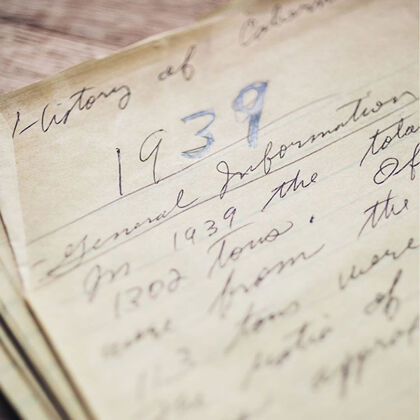 History of
1939
General Information
In 1939 the tota
1302 tons. Of
were from the
113 tons were
The ratio of
approx